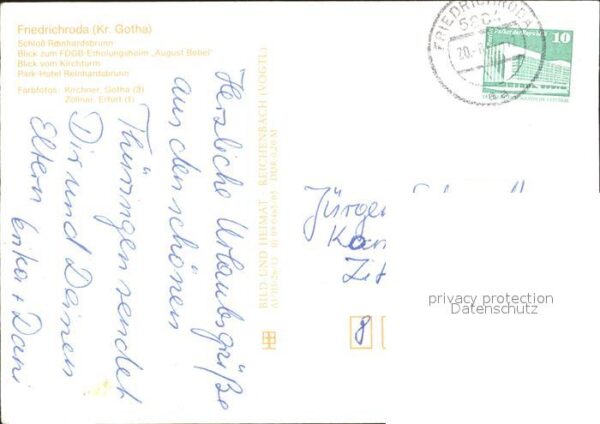 Friedrichroda (Kr. Gotha)
Schloß Reinhardsbrunn
Blick zum FDGB-Erholungsheim „August Bebel"
Blick vom Kirchturm
Park-Hotel Reinhardsbrunn
Farbfotos: Kirchner, Gotha (3)
Zöllner, Erfurt (1)
Herzliche Urlaubsgrüße
aus den schönen
Thüringen sendet
Dir und Deinen
Eltern Erika + Dani
BILD UND HEIMAT REICHENBACH (VOGTL)
FRIEDRICHRODA
Palast der Republik
10
Jürgen
privacy protection
Datenschutz
8